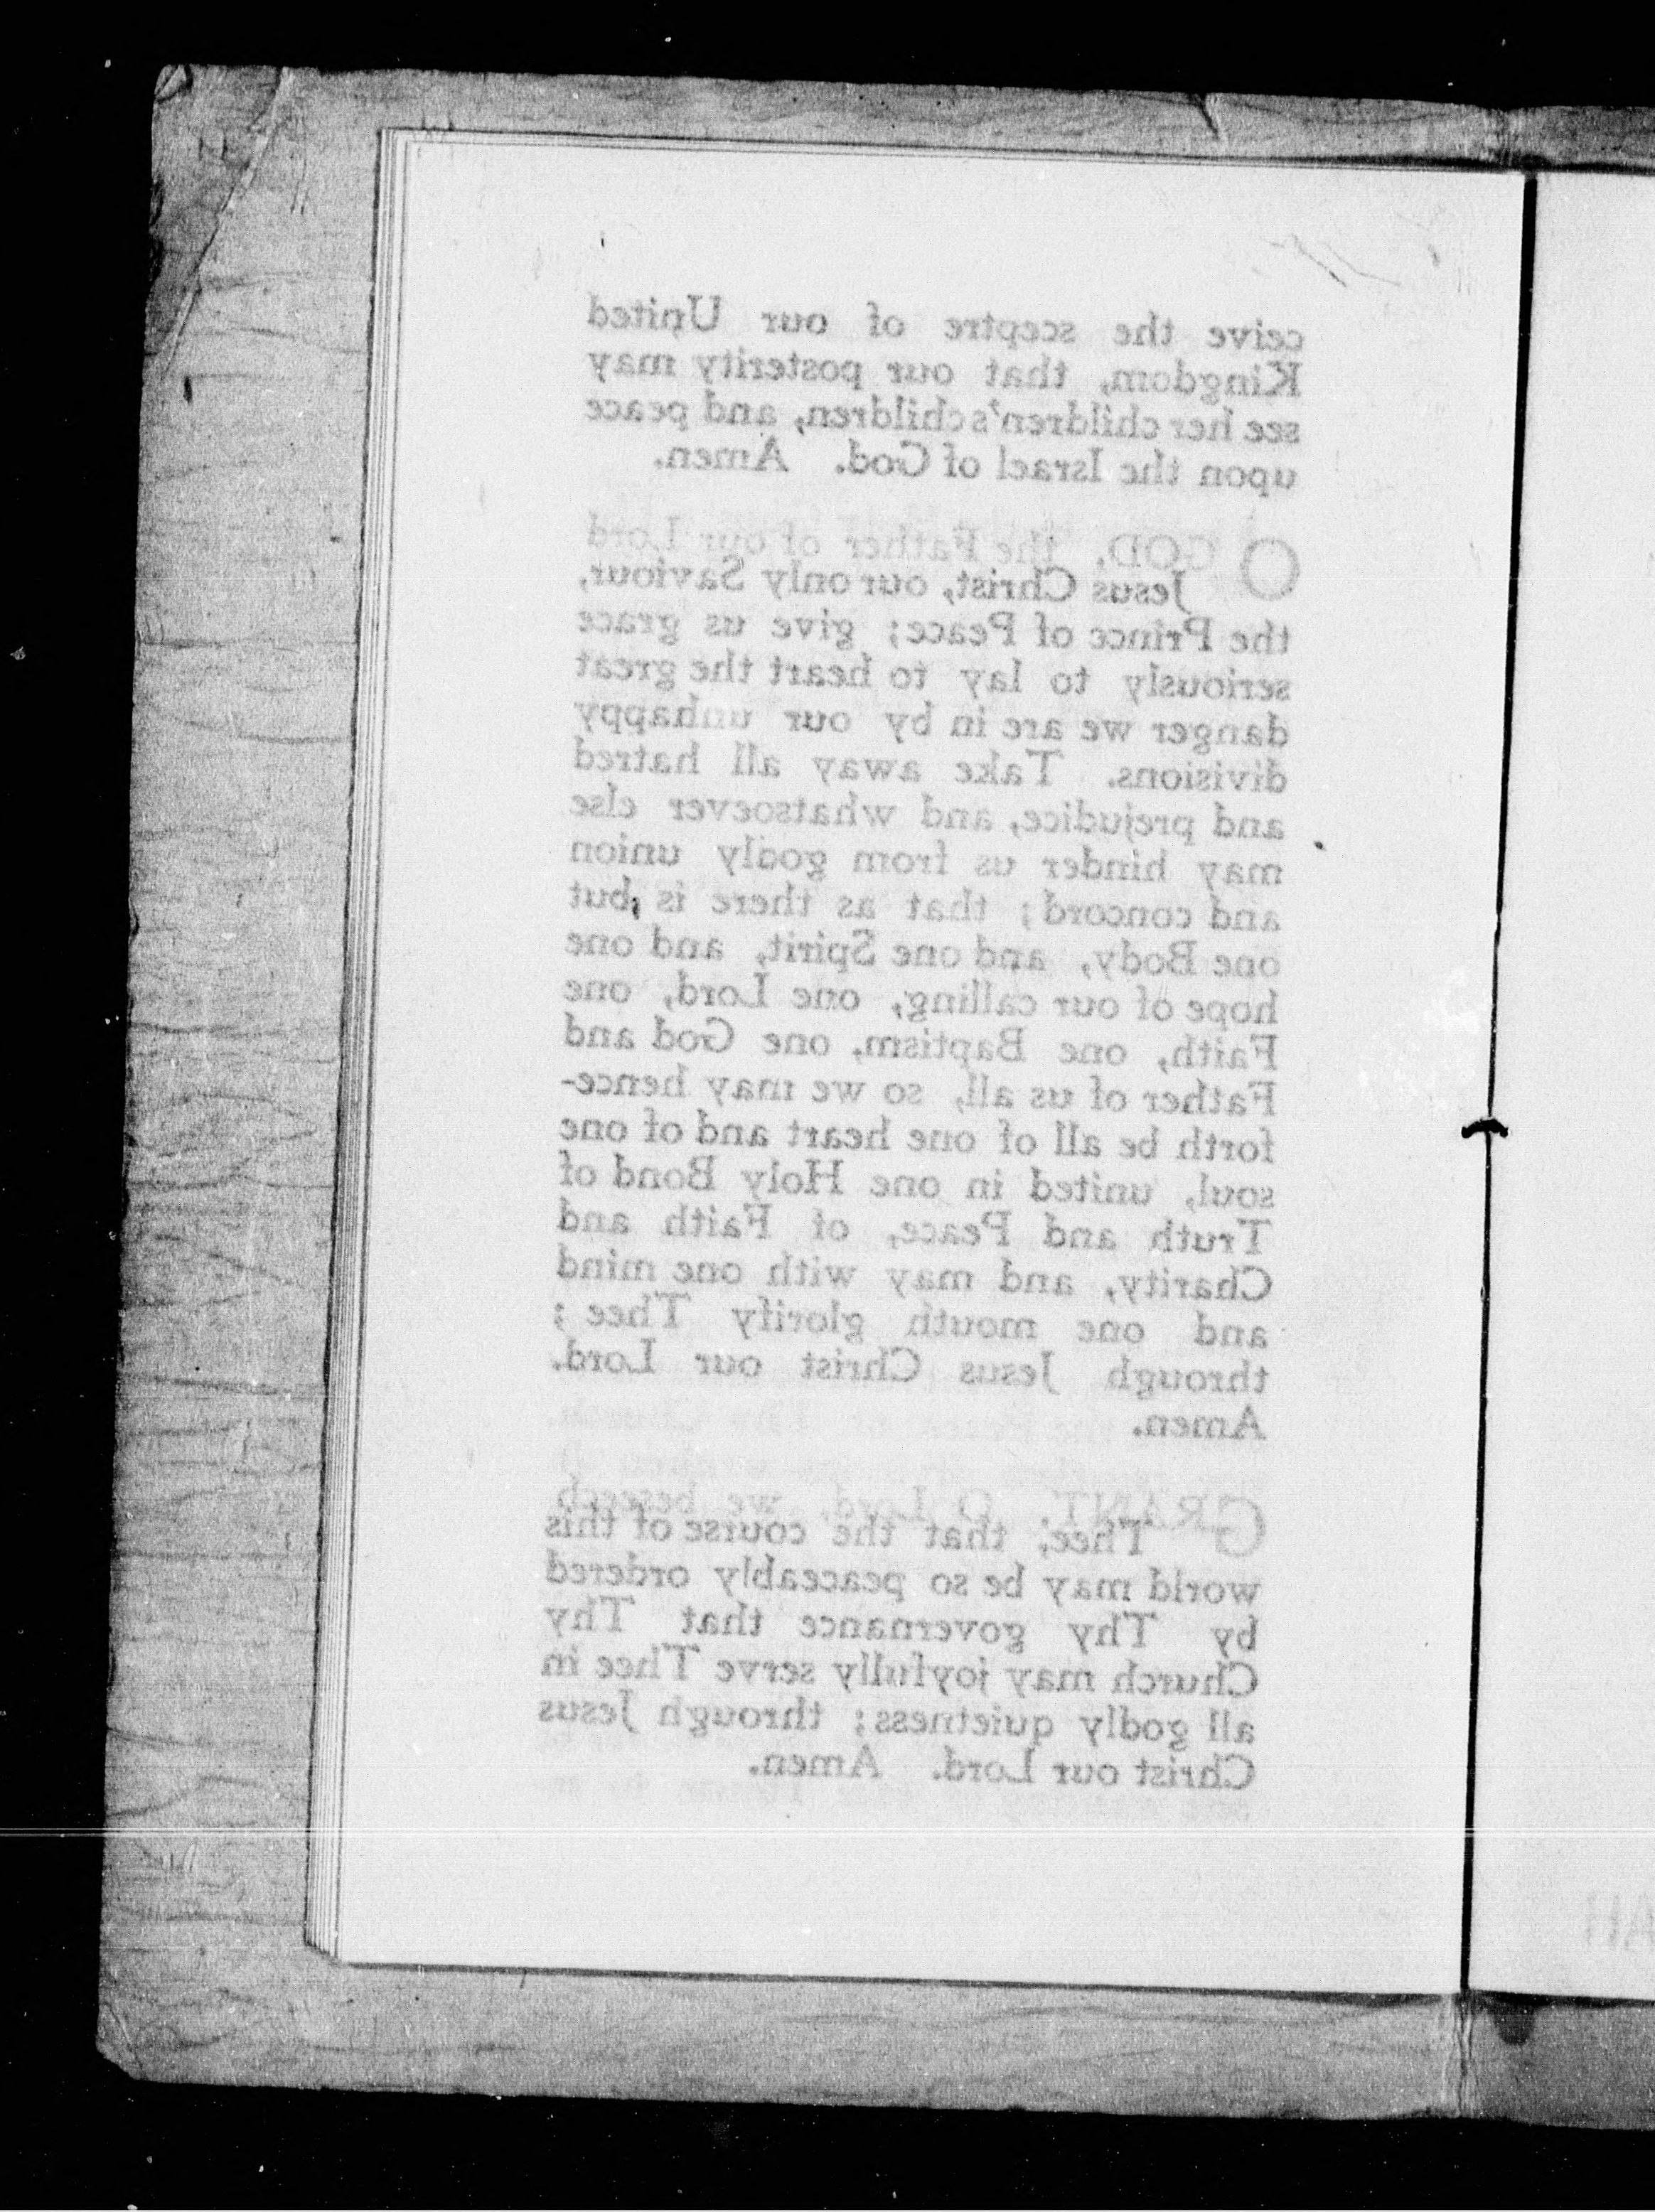 ceive the sceptre of our United
Kingdom, that our posterity may
see her children's children, and peace
upon the Israel of God. Amen.
O GOD, the Father of our Lord
Jesus Christ, our only Saviour,
the Prince of Peace; give us grace
seriously to lay to heart the great
danger we are in by our unhappy
divisions. Take away all hatred
and prejudice, and whatsoever else
may hinder us from godly union
and concord; that as there is but
one Body, and one Spirit, and one
hope of our calling, one Lord, one
Faith, one Baptism, one God and
Father of us all, so we may hence-
forth be all of one heart and of one
soul, united in one Holy Bond of
Truth and Peace, of Faith and
Charity, and may with one mind
and one mouth glorify Thee;
through Jesus Christ our Lord.
Amen.
GRANT, O Lord, we beseech
Thee, that the course of this
world may be so peaceably ordered
by Thy governance that Thy
Church may joyfully serve Thee in
all godly quietness; through Jesus
Christ our Lord. Amen.